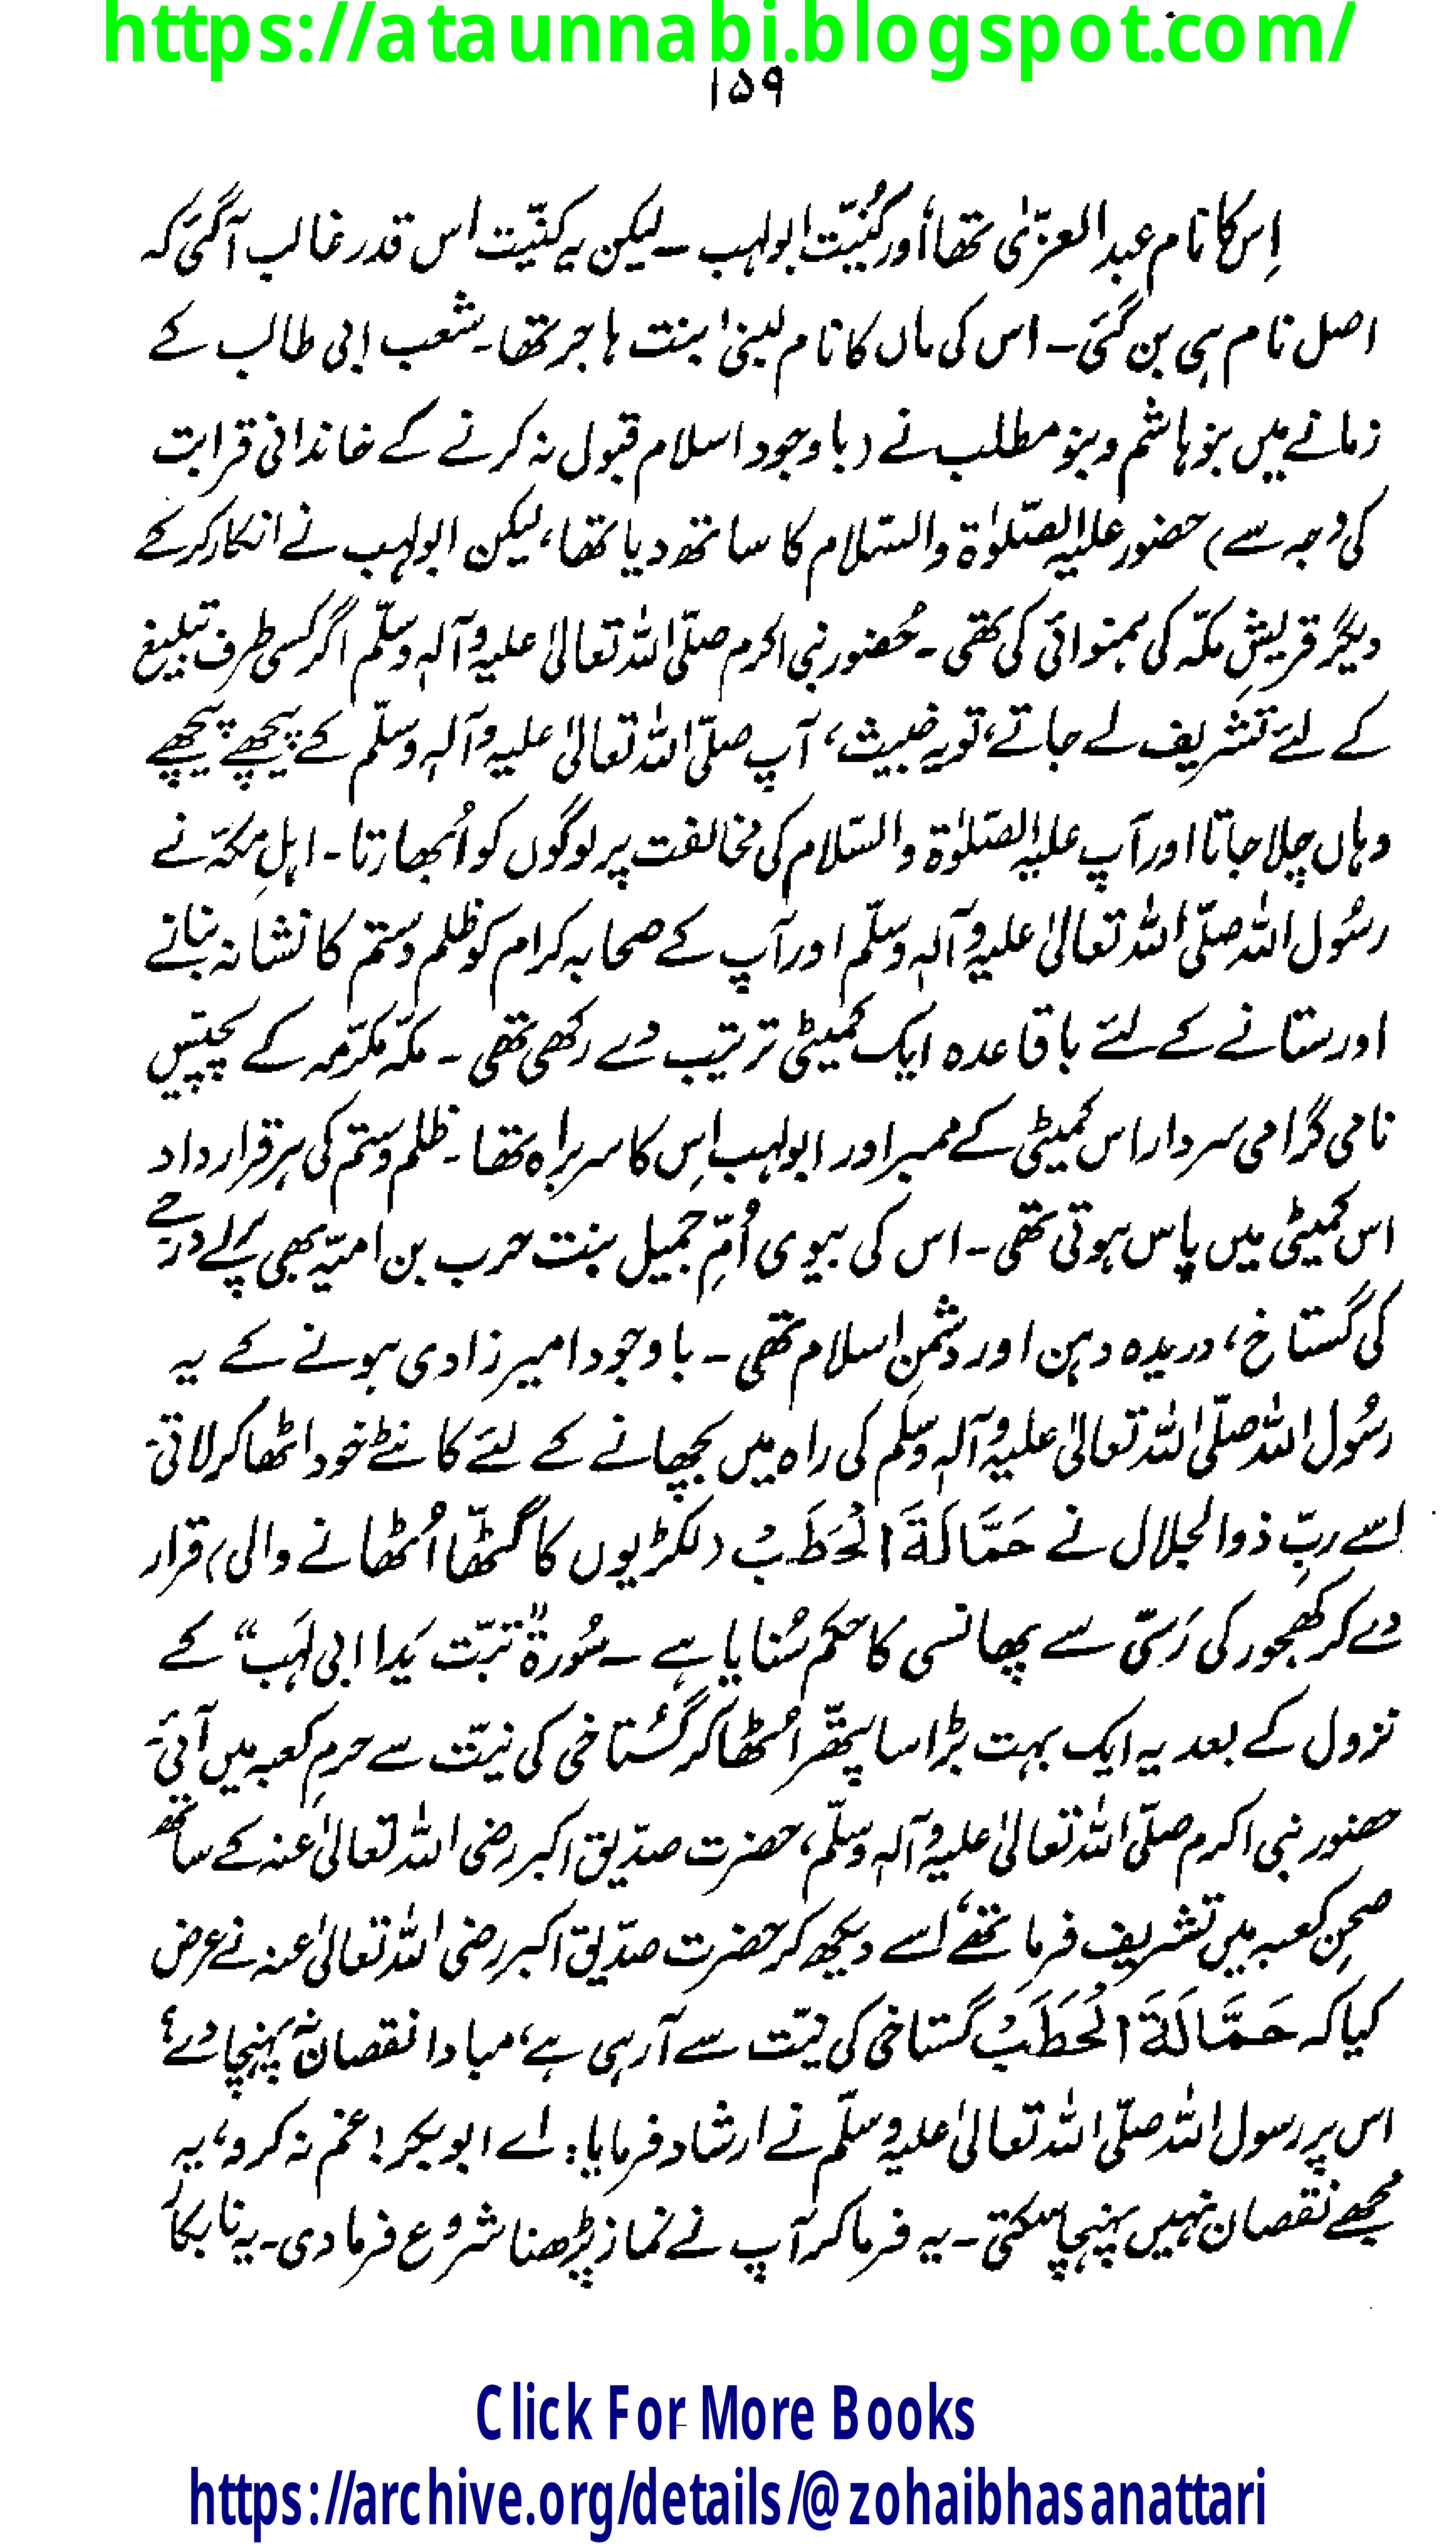 https://ataunnabi.blogspot.com/
۱۵۹
اِس کا نام عبد العزّیٰ تھا، اور کُنیّت ابولہب ــ لیکن یہ کنیّت اس قدر غالب آگئی کہ
اصل نام ہی بن گئی ۔ اس کی ماں کا نام لبنیٰ بنت ہاجر تھا۔ شعب ابی طالب کے
زمانے میں بنو ہاشم و بنو مطلب نے (باوجود اسلام قبول نہ کرنے کے خاندانی قرابت
کی وجہ سے) حضور علیہ الصّلوٰۃ والسّلام کا ساتھ دیا تھا، لیکن ابولہب نے انکار کرکے
دیگر قریشِ مکّہ کی ہمنوائی کی تھی ۔ حُضور نبی اکرم صلّی اللہ تعالیٰ علیہ وآلہٖ وسلّم اگر کسی طرف تبلیغ
کے لئے تشریف لے جاتے، تو یہ خبیث، آپ صلّی اللہ تعالیٰ علیہ وآلہٖ وسلّم کے پیچھے پیچھے
وہاں چلا جاتا اور آپ علیہ الصّلوٰۃ والسّلام کی مخالفت پر لوگوں کو اُبھارتا ۔ اہلِ مکّہ نے
رسُول اللہ صلّی اللہ تعالیٰ علیہ وآلہٖ وسلّم اور آپ کے صحابہ کرام کو ظلم و ستم کا نشانہ بنانے
اور ستانے کے لئے باقاعدہ ایک کمیٹی ترتیب دے رکھی تھی ۔ مکّہ مکرّمہ کے پچیس
نامی گرامی سردار اس کمیٹی کے ممبر اور ابولہب اِس کا سربراہ تھا ۔ ظلم و ستم کی ہر قرارداد
اس کمیٹی میں پاس ہوتی تھی ۔ اس کی بیوی اُمِّ جمیل بنت حرب بن امیّہ بھی پرلے درجے
کی گستاخ، دریدہ دہن اور دشمنِ اسلام تھی ۔ باوجود امیر زادی ہونے کے یہ
رسُول اللہ صلّی اللہ تعالیٰ علیہ وآلہٖ وسلّم کی راہ میں بچھانے کے لئے کانٹے خود اٹھا کر لاتی ۔
اسے ربِّ ذوالجلال نے حَمَّالَةَ الْحَطَبْ (لکڑیوں کا گٹھّا اُٹھانے والی) قرار
دے کر کھجور کی رَسّی سے پھانسی کا حکم سُنایا ہے ــ سُورۃ "تبّت یَدا ابی لَہَب" کے
نزول کے بعد یہ ایک بہت بڑا سا پتھّر اُٹھا کر گُستاخی کی نیّت سے حرمِ کعبہ میں آئی ۔
حضور نبی اکرم صلّی اللہ تعالیٰ علیہ وآلہٖ وسلّم، حضرت صدّیق اکبر رضی اللہ تعالیٰ عنہ کے ساتھ
صحنِ کعبہ میں تشریف فرما تھے، اسے دیکھ کر حضرت صدّیق اکبر رضی اللہ تعالیٰ عنہ نے عرض
کیا کہ حَمَّالَةَ الْحَطَبْ گستاخی کی نیّت سے آرہی ہے، مبادا نقصان نہ پہنچا دے،
اس پر رسول اللہ صلّی اللہ تعالیٰ علیہ وسلّم نے ارشاد فرمایا : اے ابوبکر! غم نہ کرو، یہ
مجھے نقصان نہیں پہنچا سکتی ۔ یہ فرما کر آپ نے نماز پڑھنا شروع فرما دی ۔ یہ نابکار
Click For More Books
https://archive.org/details/@zohaibhasanattari